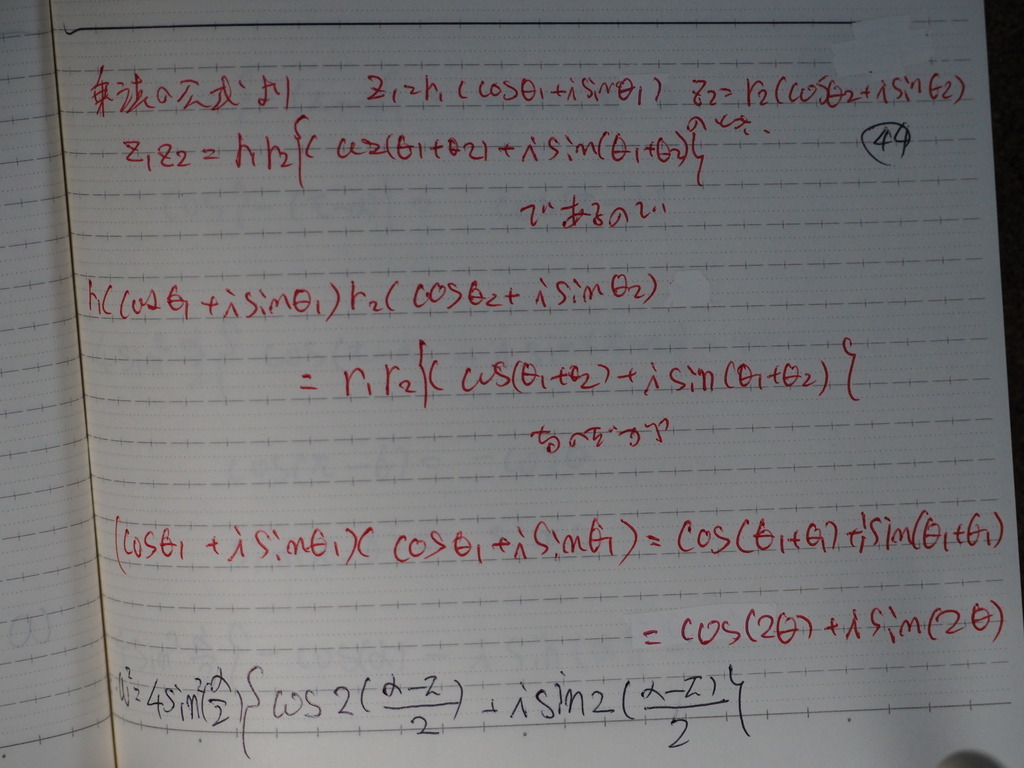 乗法の公式より z₁=r₁(cosθ₁+i sinθ₁) z₂=r₂(cosθ₂+i sinθ₂)
のとき.
z₁z₂ = r₁r₂{( cos(θ₁+θ2)+i sin(θ₁+θ2)} 44
であるので
r₁(cosθ₁+i sinθ₁)r₂(cosθ2+ i sinθ2)
= r₁r₂{( cos(θ₁+θ2)+i sin(θ₁+θ2)}
(cosθ₁ +i sinθ₁)( cosθ₁+i sinθ₁)= cos(θ₁+θ₁)+i sin(θ₁+θ₁)
= cos(2θ)+i sin(2θ)
ω²=4sin²(α/2){cos2((α-π)/2)+i sin2((α-π)/2)}